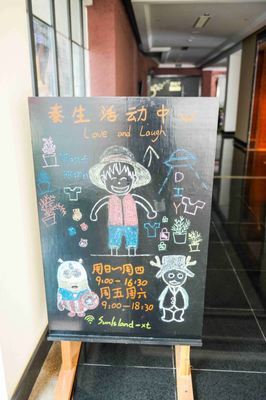 泰生活活动中
Love and Laugh
DIY
周一周四
9:00-16:30
周五周六
9:00-18:30
SunIsland-xt